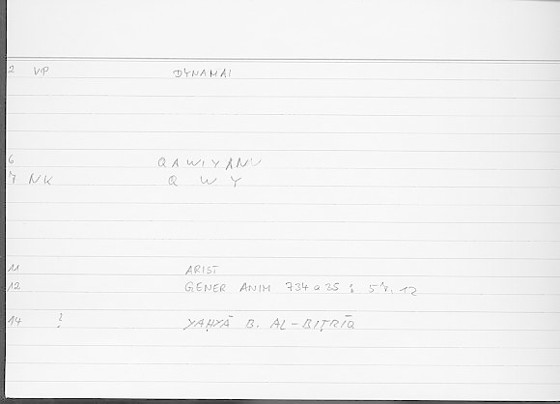 2 VP DYNAMAI
6 QAWIYANU
7 NK Q W Y
11 ARIST
12 GENER ANIM 734 a 35 :
14 ! YAḤYĀ B. AL-BIṬRĪQ